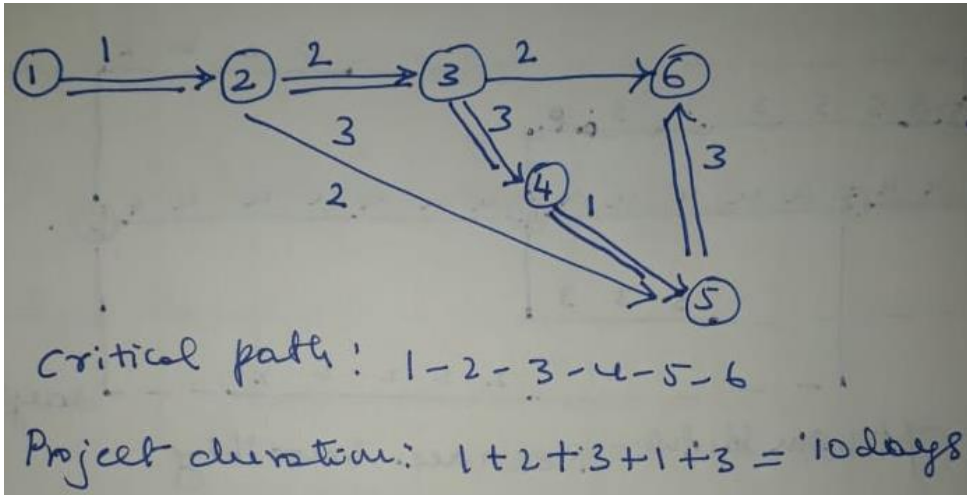 1
1
2
2
3
2
6
3
3
4
1
3
2
5
Critical path: 1-2-3-4-5-6
Project duration: 1+2+3+1+3 = 10days